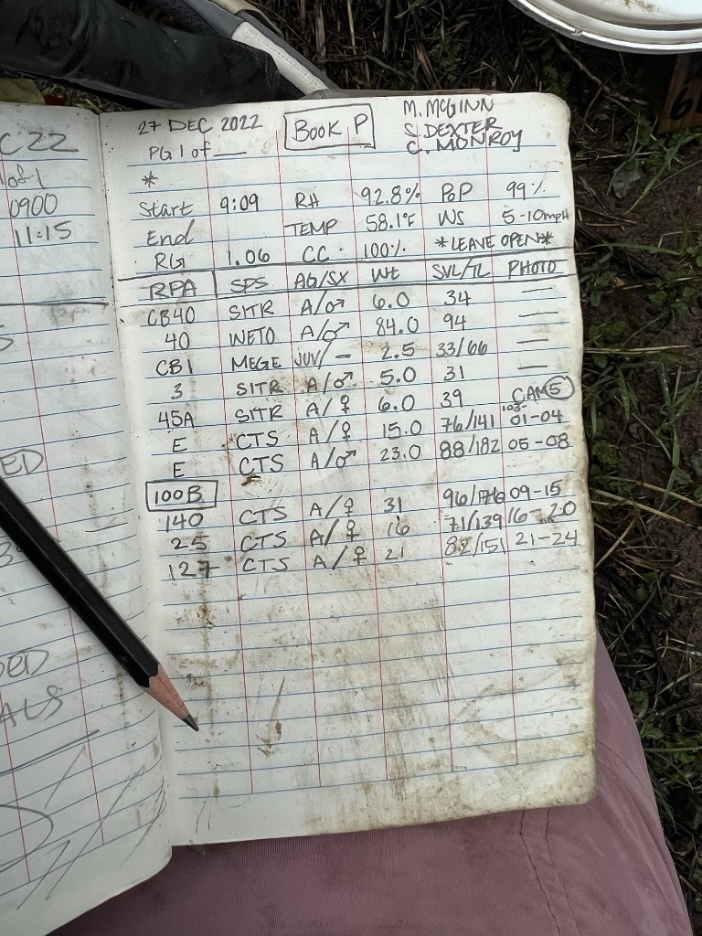 C 22
of 1
0900
11:15
ED
DED
ALS
27 DEC 2022 BOOK P M. MCGINN
PG 1 of __ S. DEXTER
* C. MONROY
Start 9:09 RH 92.8% POP 99%
End TEMP 58.1°F WS 5-10mpH
RG 1.06 CC 100% *LEAVE OPEN*
RPA SPS AG/SX Wt SVL/TL PHOTO
CB40 SITR A/♂ 6.0 34 —
40 WETO A/♂ 84.0 94 —
CB1 MEGE JUV/— 2.5 33/66 —
3 SITR A/♂ 5.0 31 —
45A SITR A/♀ 6.0 39 CAM E
E CTS A/♀ 15.0 76/141 103-01-04
E CTS A/♂ 23.0 88/182 05-08
100B
140 CTS A/♀ 31 96/176 09-15
25 CTS A/♀ 16 71/139 16-20
127 CTS A/♀ 21 82/151 21-24